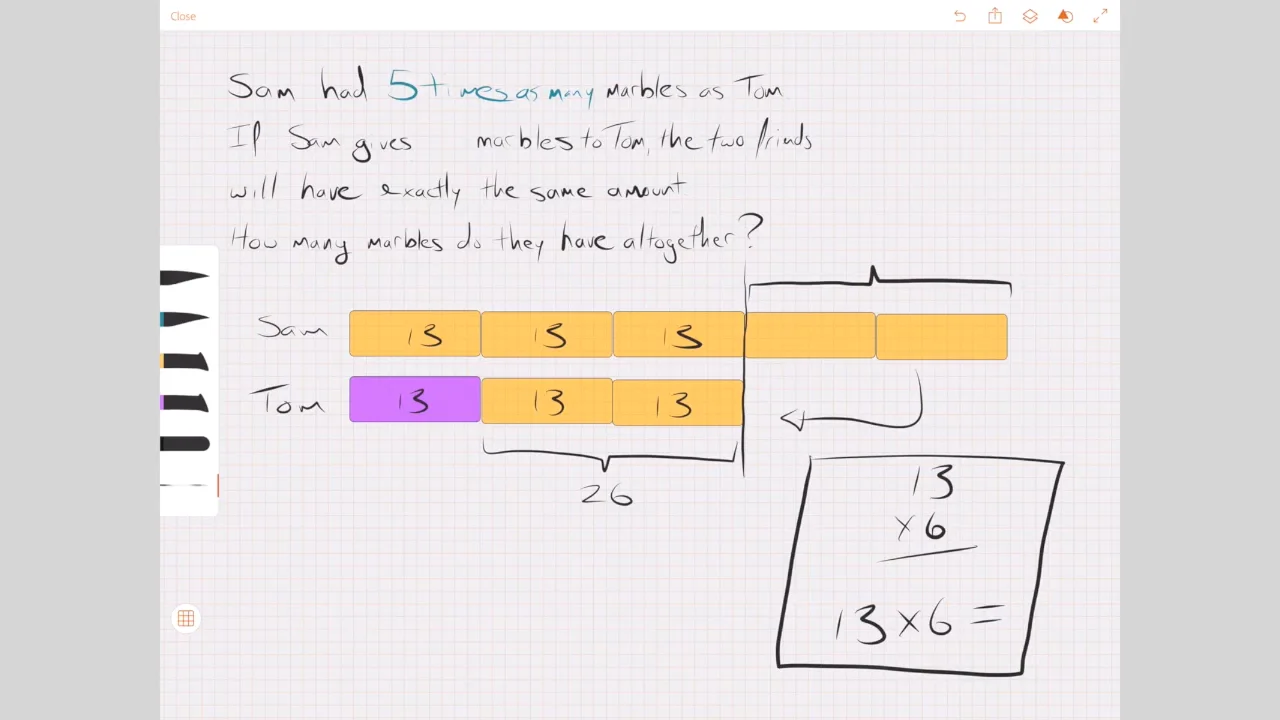 Close
Sam had 5 times as many marbles as Tom
If Sam gives marbles to Tom, the two friends
will have exactly the same amount
How many marbles do they have altogether?
Sam 13 13 13
Tom 13 13 13
26
13
×6
13×6=